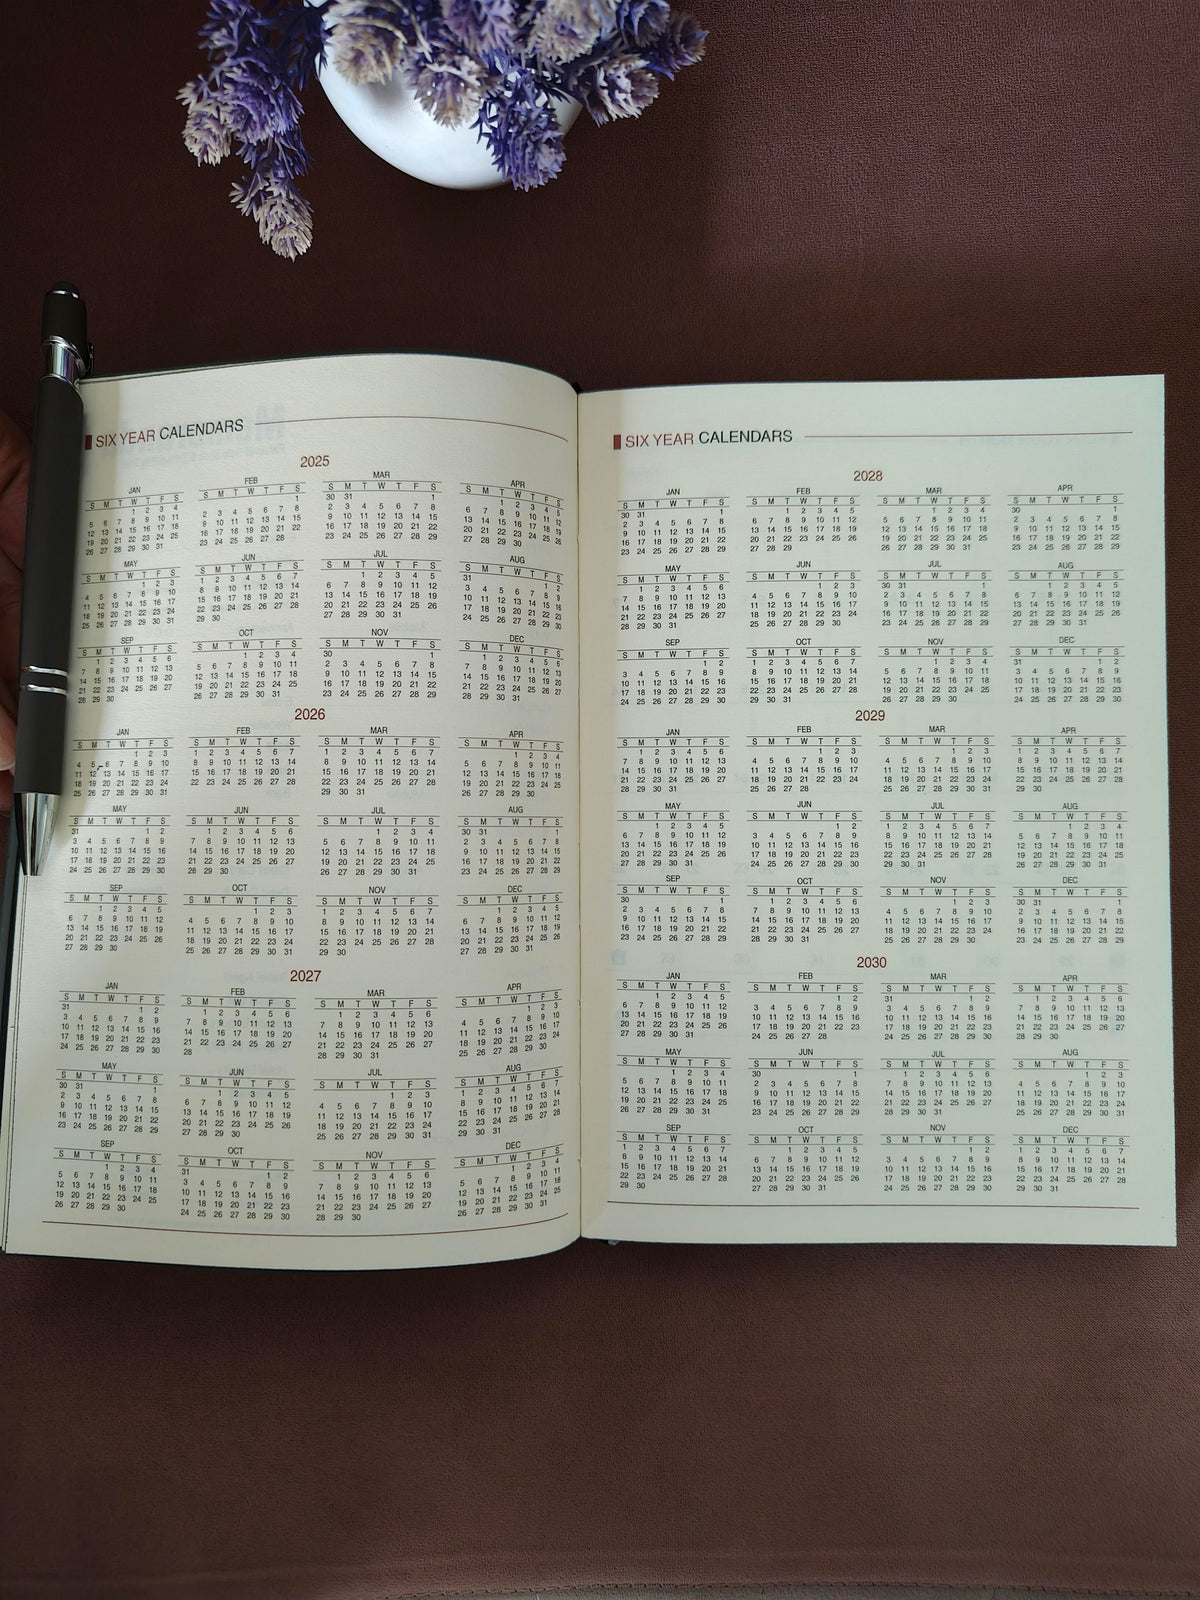 SIX YEAR CALENDARS
2025
JAN
S M T W T F S
1 2 3 4
5 6 7 8 9 10 11
12 13 14 15 16 17 18
19 20 21 22 23 24 25
26 27 28 29 30 31
FEB
S M T W T F S
1
2 3 4 5 6 7 8
9 10 11 12 13 14 15
16 17 18 19 20 21 22
23 24 25 26 27 28
MAR
S M T W T F S
30 31 1
2 3 4 5 6 7 8
9 10 11 12 13 14 15
16 17 18 19 20 21 22
23 24 25 26 27 28 29
APR
S M T W T F S
1 2 3 4 5
6 7 8 9 10 11 12
13 14 15 16 17 18 19
20 21 22 23 24 25 26
27 28 29 30
MAY
S M T W T F S
1 2 3
4 5 6 7 8 9 10
11 12 13 14 15 16 17
18 19 20 21 22 23 24
25 26 27 28 29 30 31
JUN
S M T W T F S
1 2 3 4 5 6 7
8 9 10 11 12 13 14
15 16 17 18 19 20 21
22 23 24 25 26 27 28
29 30
JUL
S M T W T F S
1 2 3 4 5
6 7 8 9 10 11 12
13 14 15 16 17 18 19
20 21 22 23 24 25 26
27 28 29 30 31
AUG
S M T W T F S
31 1 2
3 4 5 6 7 8 9
10 11 12 13 14 15 16
17 18 19 20 21 22 23
24 25 26 27 28 29 30
SEP
S M T W T F S
1 2 3 4 5 6
7 8 9 10 11 12 13
14 15 16 17 18 19 20
21 22 23 24 25 26 27
28 29 30
OCT
S M T W T F S
1 2 3 4
5 6 7 8 9 10 11
12 13 14 15 16 17 18
19 20 21 22 23 24 25
26 27 28 29 30 31
NOV
S M T W T F S
30 1
2 3 4 5 6 7 8
9 10 11 12 13 14 15
16 17 18 19 20 21 22
23 24 25 26 27 28 29
DEC
S M T W T F S
1 2 3 4 5 6
7 8 9 10 11 12 13
14 15 16 17 18 19 20
21 22 23 24 25 26 27
28 29 30 31
2026
JAN
S M T W T F S
1 2 3
4 5 6 7 8 9 10
11 12 13 14 15 16 17
18 19 20 21 22 23 24
25 26 27 28 29 30 31
FEB
S M T W T F S
1 2 3 4 5 6 7
8 9 10 11 12 13 14
15 16 17 18 19 20 21
22 23 24 25 26 27 28
MAR
S M T W T F S
1 2 3 4 5 6 7
8 9 10 11 12 13 14
15 16 17 18 19 20 21
22 23 24 25 26 27 28
29 30 31
APR
S M T W T F S
1 2 3 4
5 6 7 8 9 10 11
12 13 14 15 16 17 18
19 20 21 22 23 24 25
26 27 28 29 30
JUN
MAY
S M T W T F S
31 1 2
3 4 5 6 7 8 9
10 11 12 13 14 15 16
17 18 19 20 21 22 23
24 25 26 27 28 29 30
JUN
S M T W T F S
1 2 3 4 5 6
7 8 9 10 11 12 13
14 15 16 17 18 19 20
21 22 23 24 25 26 27
28 29 30
JUL
S M T W T F S
1 2 3 4
5 6 7 8 9 10 11
12 13 14 15 16 17 18
19 20 21 22 23 24 25
26 27 28 29 30 31
AUG
S M T W T F S
30 31 1
2 3 4 5 6 7 8
9 10 11 12 13 14 15
16 17 18 19 20 21 22
23 24 25 26 27 28 29
SEP
S M T W T F S
1 2 3 4 5
6 7 8 9 10 11 12
13 14 15 16 17 18 19
20 21 22 23 24 25 26
27 28 29 30
OCT
S M T W T F S
1 2 3
4 5 6 7 8 9 10
11 12 13 14 15 16 17
18 19 20 21 22 23 24
25 26 27 28 29 30 31
NOV
S M T W T F S
1 2 3 4 5 6 7
8 9 10 11 12 13 14
15 16 17 18 19 20 21
22 23 24 25 26 27 28
29 30
DEC
S M T W T F S
1 2 3 4 5
6 7 8 9 10 11 12
13 14 15 16 17 18 19
20 21 22 23 24 25 26
27 28 29 30 31
2027
JAN
S M T W T F S
31 1 2
3 4 5 6 7 8 9
10 11 12 13 14 15 16
17 18 19 20 21 22 23
24 25 26 27 28 29 30
FEB
S M T W T F S
1 2 3 4 5 6
7 8 9 10 11 12 13
14 15 16 17 18 19 20
21 22 23 24 25 26 27
28
MAR
S M T W T F S
1 2 3 4 5 6
7 8 9 10 11 12 13
14 15 16 17 18 19 20
21 22 23 24 25 26 27
28 29 30 31
APR
S M T W T F S
1 2 3
4 5 6 7 8 9 10
11 12 13 14 15 16 17
18 19 20 21 22 23 24
25 26 27 28 29 30
MAY
S M T W T F S
30 31 1
2 3 4 5 6 7 8
9 10 11 12 13 14 15
16 17 18 19 20 21 22
23 24 25 26 27 28 29
JUN
S M T W T F S
1 2 3 4 5
6 7 8 9 10 11 12
13 14 15 16 17 18 19
20 21 22 23 24 25 26
27 28 29 30
JUL
S M T W T F S
1 2 3
4 5 6 7 8 9 10
11 12 13 14 15 16 17
18 19 20 21 22 23 24
25 26 27 28 29 30 31
AUG
S M T W T F S
1 2 3 4 5 6 7
8 9 10 11 12 13 14
15 16 17 18 19 20 21
22 23 24 25 26 27 28
29 30 31
SEP
S M T W T F S
1 2 3 4
5 6 7 8 9 10 11
12 13 14 15 16 17 18
19 20 21 22 23 24 25
26 27 28 29 30
OCT
S M T W T F S
31 1 2
3 4 5 6 7 8 9
10 11 12 13 14 15 16
17 18 19 20 21 22 23
24 25 26 27 28 29 30
NOV
S M T W T F S
1 2 3 4 5 6
7 8 9 10 11 12 13
14 15 16 17 18 19 20
21 22 23 24 25 26 27
28 29 30
DEC
S M T W T F S
1 2 3 4
5 6 7 8 9 10 11
12 13 14 15 16 17 18
19 20 21 22 23 24 25
26 27 28 29 30 31
SIX YEAR CALENDARS
2028
JAN
S M T W T F S
30 31 1
2 3 4 5 6 7 8
9 10 11 12 13 14 15
16 17 18 19 20 21 22
23 24 25 26 27 28 29
FEB
S M T W T F S
1 2 3 4 5
6 7 8 9 10 11 12
13 14 15 16 17 18 19
20 21 22 23 24 25 26
27 28 29
MAR
S M T W T F S
1 2 3 4
5 6 7 8 9 10 11
12 13 14 15 16 17 18
19 20 21 22 23 24 25
26 27 28 29 30 31
APR
S M T W T F S
30 1
2 3 4 5 6 7 8
9 10 11 12 13 14 15
16 17 18 19 20 21 22
23 24 25 26 27 28 29
MAY
S M T W T F S
1 2 3 4 5 6
7 8 9 10 11 12 13
14 15 16 17 18 19 20
21 22 23 24 25 26 27
28 29 30 31
JUN
S M T W T F S
1 2 3
4 5 6 7 8 9 10
11 12 13 14 15 16 17
18 19 20 21 22 23 24
25 26 27 28 29 30
JUL
S M T W T F S
30 31 1
2 3 4 5 6 7 8
9 10 11 12 13 14 15
16 17 18 19 20 21 22
23 24 25 26 27 28 29
AUG
S M T W T F S
1 2 3 4 5
6 7 8 9 10 11 12
13 14 15 16 17 18 19
20 21 22 23 24 25 26
27 28 29 30 31
SEP
S M T W T F S
1 2
3 4 5 6 7 8 9
10 11 12 13 14 15 16
17 18 19 20 21 22 23
24 25 26 27 28 29 30
OCT
S M T W T F S
1 2 3 4 5 6 7
8 9 10 11 12 13 14
15 16 17 18 19 20 21
22 23 24 25 26 27 28
29 30 31
NOV
S M T W T F S
1 2 3 4
5 6 7 8 9 10 11
12 13 14 15 16 17 18
19 20 21 22 23 24 25
26 27 28 29 30
DEC
S M T W T F S
31 1 2
3 4 5 6 7 8 9
10 11 12 13 14 15 16
17 18 19 20 21 22 23
24 25 26 27 28 29 30
2029
JAN
S M T W T F S
1 2 3 4 5 6
7 8 9 10 11 12 13
14 15 16 17 18 19 20
21 22 23 24 25 26 27
28 29 30 31
FEB
S M T W T F S
1 2 3
4 5 6 7 8 9 10
11 12 13 14 15 16 17
18 19 20 21 22 23 24
25 26 27 28
MAR
S M T W T F S
1 2 3
4 5 6 7 8 9 10
11 12 13 14 15 16 17
18 19 20 21 22 23 24
25 26 27 28 29 30 31
APR
S M T W T F S
1 2 3 4 5 6 7
8 9 10 11 12 13 14
15 16 17 18 19 20 21
22 23 24 25 26 27 28
29 30
MAY
S M T W T F S
1 2 3 4 5
6 7 8 9 10 11 12
13 14 15 16 17 18 19
20 21 22 23 24 25 26
27 28 29 30 31
JUN
S M T W T F S
1 2
3 4 5 6 7 8 9
10 11 12 13 14 15 16
17 18 19 20 21 22 23
24 25 26 27 28 29 30
JUL
S M T W T F S
1 2 3 4 5 6 7
8 9 10 11 12 13 14
15 16 17 18 19 20 21
22 23 24 25 26 27 28
29 30 31
AUG
S M T W T F S
1 2 3 4
5 6 7 8 9 10 11
12 13 14 15 16 17 18
19 20 21 22 23 24 25
26 27 28 29 30 31
SEP
S M T W T F S
30 1
2 3 4 5 6 7 8
9 10 11 12 13 14 15
16 17 18 19 20 21 22
23 24 25 26 27 28 29
OCT
S M T W T F S
1 2 3 4 5 6
7 8 9 10 11 12 13
14 15 16 17 18 19 20
21 22 23 24 25 26 27
28 29 30 31
NOV
S M T W T F S
1 2 3
4 5 6 7 8 9 10
11 12 13 14 15 16 17
18 19 20 21 22 23 24
25 26 27 28 29 30
DEC
S M T W T F S
30 31 1
2 3 4 5 6 7 8
9 10 11 12 13 14 15
16 17 18 19 20 21 22
23 24 25 26 27 28 29
2030
JAN
S M T W T F S
1 2 3 4 5
6 7 8 9 10 11 12
13 14 15 16 17 18 19
20 21 22 23 24 25 26
27 28 29 30 31
FEB
S M T W T F S
1 2
3 4 5 6 7 8 9
10 11 12 13 14 15 16
17 18 19 20 21 22 23
24 25 26 27 28
MAR
S M T W T F S
31 1 2
3 4 5 6 7 8 9
10 11 12 13 14 15 16
17 18 19 20 21 22 23
24 25 26 27 28 29 30
APR
S M T W T F S
1 2 3 4 5 6
7 8 9 10 11 12 13
14 15 16 17 18 19 20
21 22 23 24 25 26 27
28 29 30
MAY
S M T W T F S
1 2 3 4
5 6 7 8 9 10 11
12 13 14 15 16 17 18
19 20 21 22 23 24 25
26 27 28 29 30 31
JUN
S M T W T F S
30 1
2 3 4 5 6 7 8
9 10 11 12 13 14 15
16 17 18 19 20 21 22
23 24 25 26 27 28 29
JUL
S M T W T F S
1 2 3 4 5 6
7 8 9 10 11 12 13
14 15 16 17 18 19 20
21 22 23 24 25 26 27
28 29 30 31
AUG
S M T W T F S
1 2 3
4 5 6 7 8 9 10
11 12 13 14 15 16 17
18 19 20 21 22 23 24
25 26 27 28 29 30 31
SEP
S M T W T F S
1 2 3 4 5 6 7
8 9 10 11 12 13 14
15 16 17 18 19 20 21
22 23 24 25 26 27 28
29 30
OCT
S M T W T F S
1 2 3 4 5
6 7 8 9 10 11 12
13 14 15 16 17 18 19
20 21 22 23 24 25 26
27 28 29 30 31
NOV
S M T W T F S
1 2
3 4 5 6 7 8 9
10 11 12 13 14 15 16
17 18 19 20 21 22 23
24 25 26 27 28 29 30
DEC
S M T W T F S
1 2 3 4 5 6 7
8 9 10 11 12 13 14
15 16 17 18 19 20 21
22 23 24 25 26 27 28
29 30 31